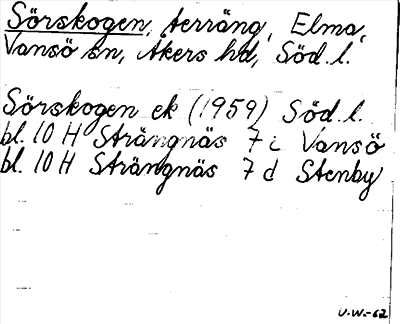 Sörskogen, terräng, Elma,
Vansö sn, Åkers hd, Söd. l.
Sörskogen ek (1959) Söd. l.
bl. 10 H Strängnäs 7 c Vansö
bl. 10 H Strängnäs 7 d Stenby
U.W.-62